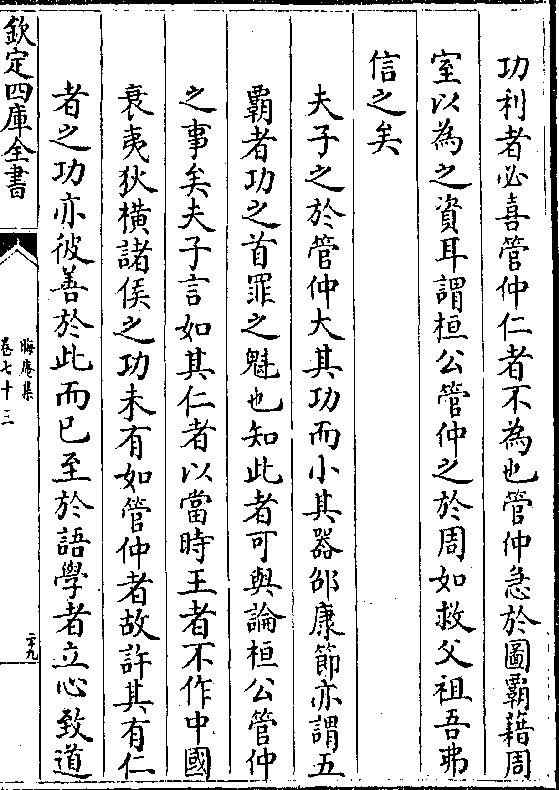 功利者必喜管仲仁者不為也管仲急於圖霸藉周
室以為之資耳謂桓公管仲之於周如救父祖吾弗
信之矣
夫子之於管仲大其功而小其器邵康節亦謂五
霸者功之首罪之魁也知此者可與論桓公管仲
之事矣夫子言如其仁者以當時王者不作中國
衰夷狄橫諸侯之功未有如管仲者故許其有仁
者之功亦彼善於此而已至於語學者立心致道
欽定四庫全書
晦庵集
卷七十三
二十九